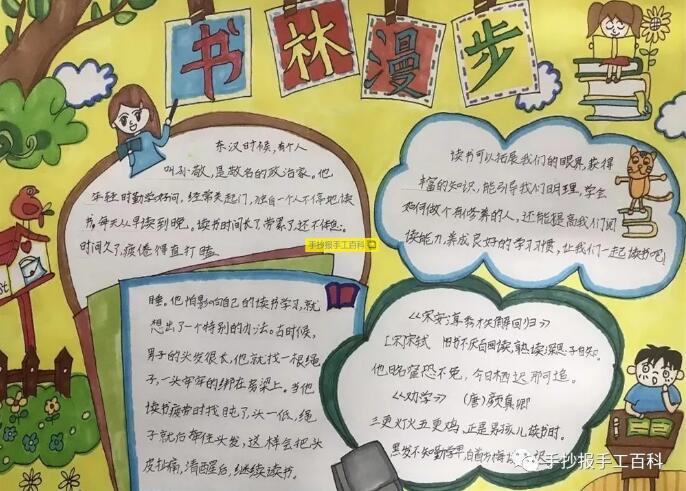 书林漫步
东汉时候,有个人
叫孙敬,是著名的政治家。他
年轻时勤学好问,经常关起门,独自一个人不停地读
书。每天从早读到晚。读书时间长了,劳累了,还不休息。
时间久了,疲倦得直打瞌
睡。他怕影响自己的读书学习,就
想出了一个特别的办法。古时候,
男子的头发很长,他就找一根绳
子,一头牢牢的绑在房梁上。当他
读书疲劳时打盹了,头一低,绳
子就会牵住头发,这样会把头
皮扯痛,清醒后,继续读书。
读书可以拓展我们的眼界,获得
丰富的知识,能引导我们明理,学会
如何做个有修养的人,还能提高我们阅
读能力,养成良好的学习习惯,让我们一起读书吧
《安惇秀才失解西归》
宋 苏轼 旧书不厌百回读,熟读深思子自知。
他年名宦恐不免,今日栖迟那可追。
《劝学》 (唐)颜真卿
三更灯火五更鸡,正是男孩儿读书时。
黑发不知勤学早,白首方悔
手抄报手工百科
手抄报手工百科